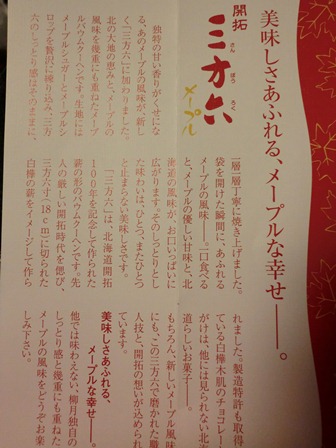 美味しさあふれる、メープルな幸せ――。
開拓
三方六
さん
ぽう
ろく
メープル
独特の甘い香りがくせにな
る、あのメープルの風味が、新し
く「三方六」に加わりました。
北の大地の恵みと、メープルの
風味を幾重にも重ねたメープ
ルバウムクーヘンです。生地には
メープルシュガーとメープルシ
ロップを贅沢に練り込み、三方
六のしっとり感はそのままに。
一層一層丁寧に焼き上げました。
袋を開けた瞬間に、あふれる
メープルの風味――。一口食べる
と、メープルの優しい甘味と、北
海道の風味が、お口いっぱいに
広がります。そのしっとりとし
た味わいは、ひとつ、またひとつ
と止まらない美味しさです。
「三方六」は、北海道開拓
100年を記念して作られた
薪の形のバウムクーヘンです。先
人の厳しい開拓時代を偲び、
三方六寸(18cm)に切られた
白樺の薪をイメージして作ら
れました。製造特許も取得
している白樺木肌のチョコレー
がけは、他には見られない北
道らしいお菓子――。
もちろん、新しいメープル風味
にも、この三方六で磨かれた職
人技と、開拓の想いが込められ
ています。
美味しさあふれる、
メープルな幸せ――。
他では味わえない、柳月独自の
しっとり感と幾重にも重ねた
メープルの風味をどうぞお楽
しみ下さい。